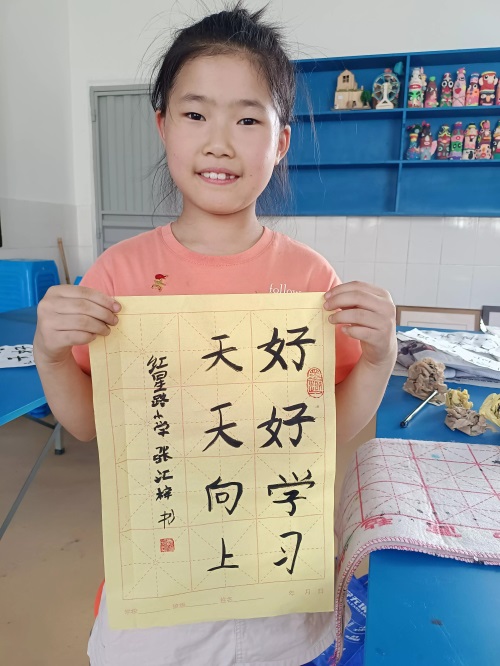 好好学习
天天向上
红星路小学 张汇梓 书
follow